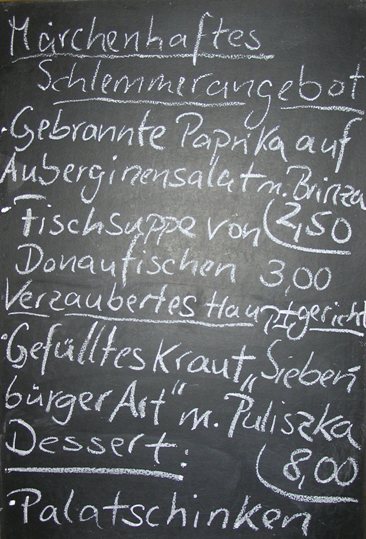 Märchenhaftes
Schlemmerangebot
• Gebrannte Paprika auf
Auberginensalat m. Brinza
2,50
• Fischsuppe von
Donaufischen 3,00
Verzaubertes Hauptgericht
• Gefülltes Kraut „Sieben
bürger Art" m. Puliszka
8,00
Dessert:
• Palatschinken